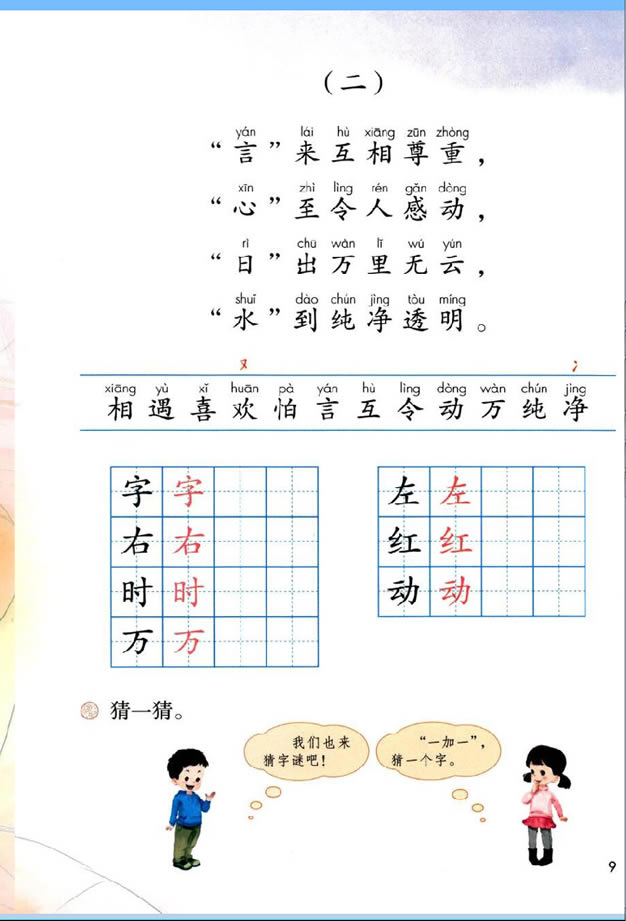 （二）
yán lái hù xiāng zūn zhòng
“言”来互相尊重，
xīn zhì lìng rén gǎn dòng
“心”至令人感动，
rì chū wàn lǐ wú yún
“日”出万里无云，
shuǐ dào chún jìng tòu míng
“水”到纯净透明。
又 冫
xiāng yù xǐ huān pà yán hù lìng dòng wàn chún jìng
相遇喜欢怕言互令动万纯净
字 字 左 左
右 右 红 红
时 时 动 动
万 万
猜一猜。
我们也来
猜字谜吧！
“一加一”，
猜一个字。
9